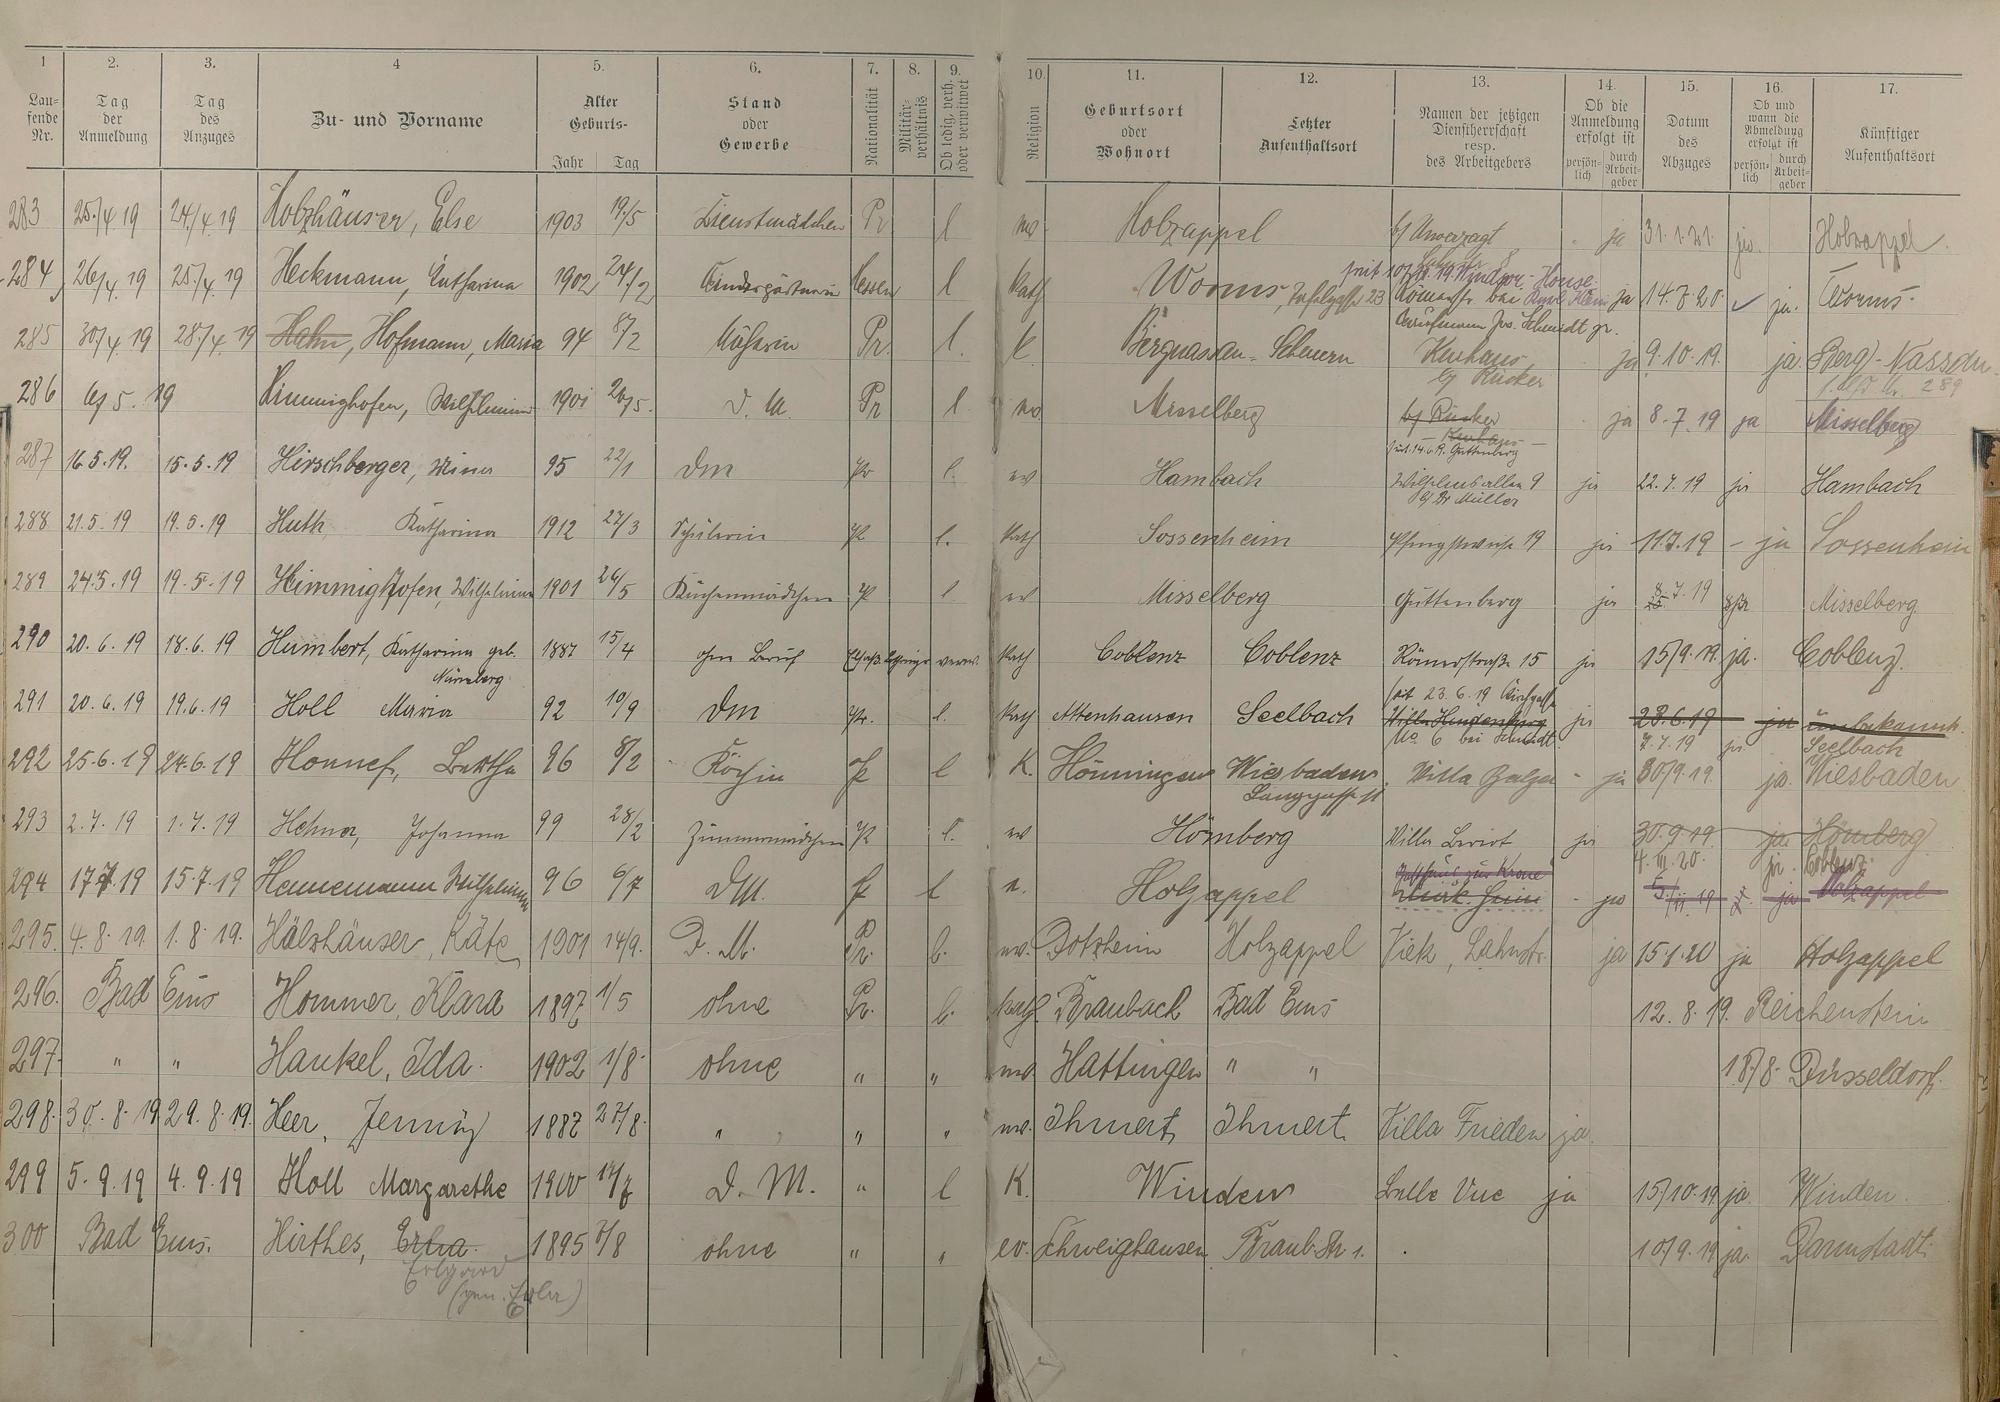 1 2. 3. 4 5. 6. 7. 8. 9. 10. 11. 12. 13. 14. 15. 16. 17.
Lau-
fende
Nr.
Tag
der
Anmeldung
Tag
des
Anzuges
Zu- und Vorname
Alter
Geburts-
Jahr Tag
Stand
oder
Gewerbe
Nationalität
Militär-
verhältnis
Ob ledig, verh.
oder verwitwet
Religion
Geburtsort
oder
Wohnort
Letzter
Aufenthaltsort
Namen der jetzigen
Dienstherrschaft
resp.
des Arbeitgebers
Ob die
Anmeldung
erfolgt ist
persön-
lich
durch
Arbeit-
geber
Datum
des
Abzuges
Ob und
wann die
Abmeldung
erfolgt ist
persön-
lich
durch
Arbeit-
geber
Künftiger
Aufenthaltsort
283 25./4 19 24./4. 19 Holzhäuser, Else 1903 19./5 Dienstmädchen Pr l ev Holzappel b/ Unverzagt ja 31.1.21. ja. Holzappel.
284 26/4. 19 25./4. 19 Heckmann, Catharina 1902 24./2 Kindergärtnerin Hessen l kath Worms, 23 seit 10/ 19 Windsor-House. Römerstr bei ja 14.8.20. ja. Worms.
285 30/4. 19 28./4. 19 Hahn, Hofmann, Maria 94 8/2 Näherin Pr. l. k Bergnassau-Scheuern Kaufmann Jos. Schmidt gr. Kurhaus b/ Rücker ja 9.10.19. ja. Berg-Nassau.
286 6/5. 19 Himmighofen, Wilhelmine 1901 26/5. D. M. Pr l. ev. Misselberg b/ Rücker Kurhaus ja 8.7.19 ja Misselberg
289
287 16.5.19. 15.5.19 Hirschberger, Mina 95 22/1 DM Pr l. ev Hambach seit 14.6.19. Guttenberg Wilhelmsallee 9 b/ Dr Müller ja 22.7.19 ja Hambach
288 21.5.19 19.5.19 Huth Katharina 1912 27/3 Schülerin Pr l. kath Sossenheim Pfingstwiese 19 ja 11.7.19 - ja Sossenheim
289 24.5.19 19.5.19 Himmighofen, Wilhelmine 1901 26/5 Küchenmädchen Pr l ev Misselberg Guttenberg ja 8.7.19 Misselberg
290 20.6.19 18.6.19 Humbert, Katharina geb. Nürnberg 1887 15/4 ohne Beruf verw. kath Coblenz Coblenz Römerstraße 15 ja 15/9.19. ja. Coblenz.
291 20.6.19 19.6.19 Holl Maria 92 10/9 DM Pr. l. kath Attenhausen Seelbach seit 23.6.19 Kirchgasse Villa Hindenburg No 6 bei Schmidt. ja 23.6.19 ja unbekannt. 7.7.19 ja. Seelbach
292 25.6.19 24.6.19 Honnef, Bertha 96 8/2 Köchin Pr l K. Hönningen Wiesbaden, Langgasse Villa Balzer - ja 30/9.19. ja. Wiesbaden
293 2.7.19 1.7.19 Hehner, Johanna 99 28/2 Zimmermädchen Pr l. ev Hömberg Villa Beriot ja 30.9.19. ja Hömberg
294 17.7.19 15.7.19 Hennemann Wilhelmine 96 6/7 DM. Pr l e. Holzappel Gasthaus zur Krone - ja 4.III.20. ja. Coblenz. 5./11.19 ja Holzappel
295. 4.8.19. 1.8.19. Hölzhäuser, Käte 1901 14/9. D. M. Pr. l. ev. Dotzheim Holzappel Viek, Lahnstr. ja 15.1.20 ja Holzappel
296. Bad Ems Hommer, Klara 1897 1/5 ohne Pr. l. kath. Braubach Bad Ems 12.8.19. Reichenstein
297. " " Hankel, Ida. 1902 1/8. ohne " " ev Hattingen " " 18/8. Düsseldorf.
298. 30.8.19 29.8.19. Heer, Jenny 1887 27/8. " " " ev. Ihmert Ihmert Villa Frieden ja.
299 5.9.19 4.9.19 Holl Margarethe 1900 D. M. " l K. Winden Belle Vue ja 15/10.19 ja. Winden.
300 Bad Ems. Hirthes, Erna. 1895 8/8 ohne " " ev. Schweighausen Braub. Str 1. 10/9.19 ja. Darmstadt.